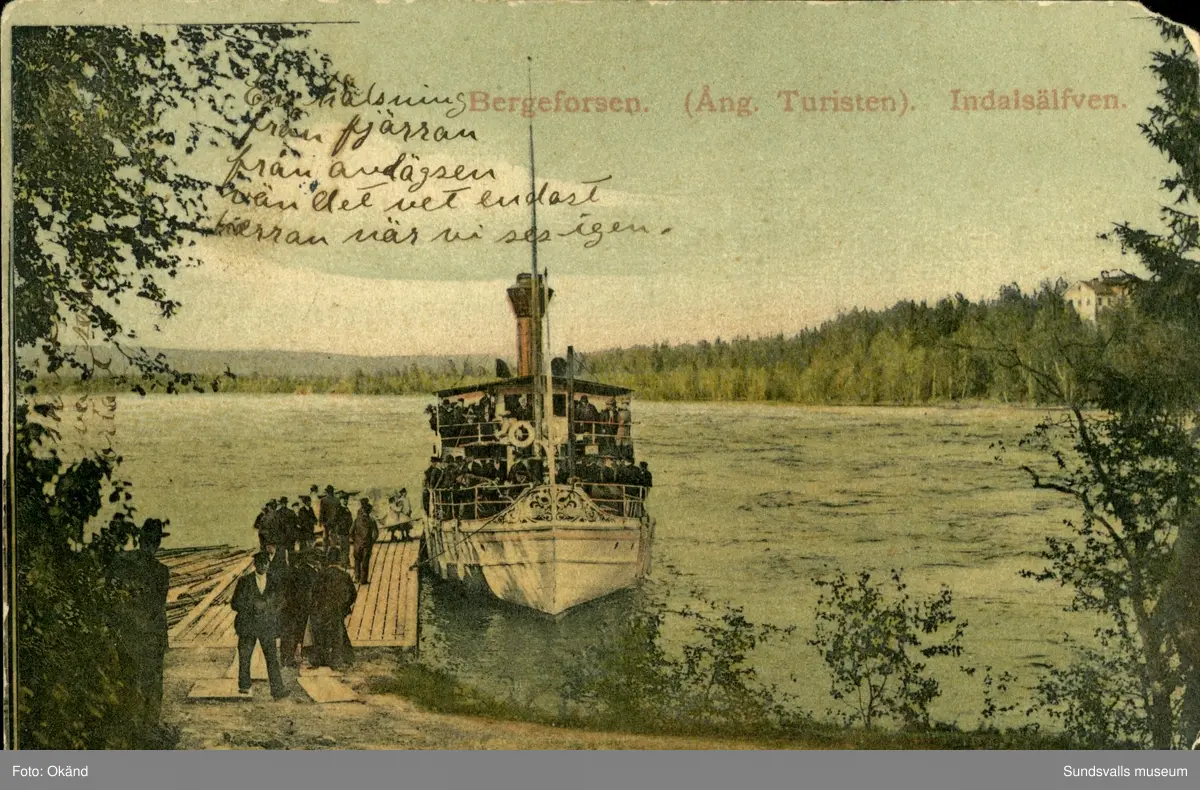 En hälsning
Bergeforsen. (Ång. Turisten). Indalsälfven.
från fjärran
från avlägsen
vän det vet endast
när vi ses igen.
Foto: Okänd
Sundsvalls museum